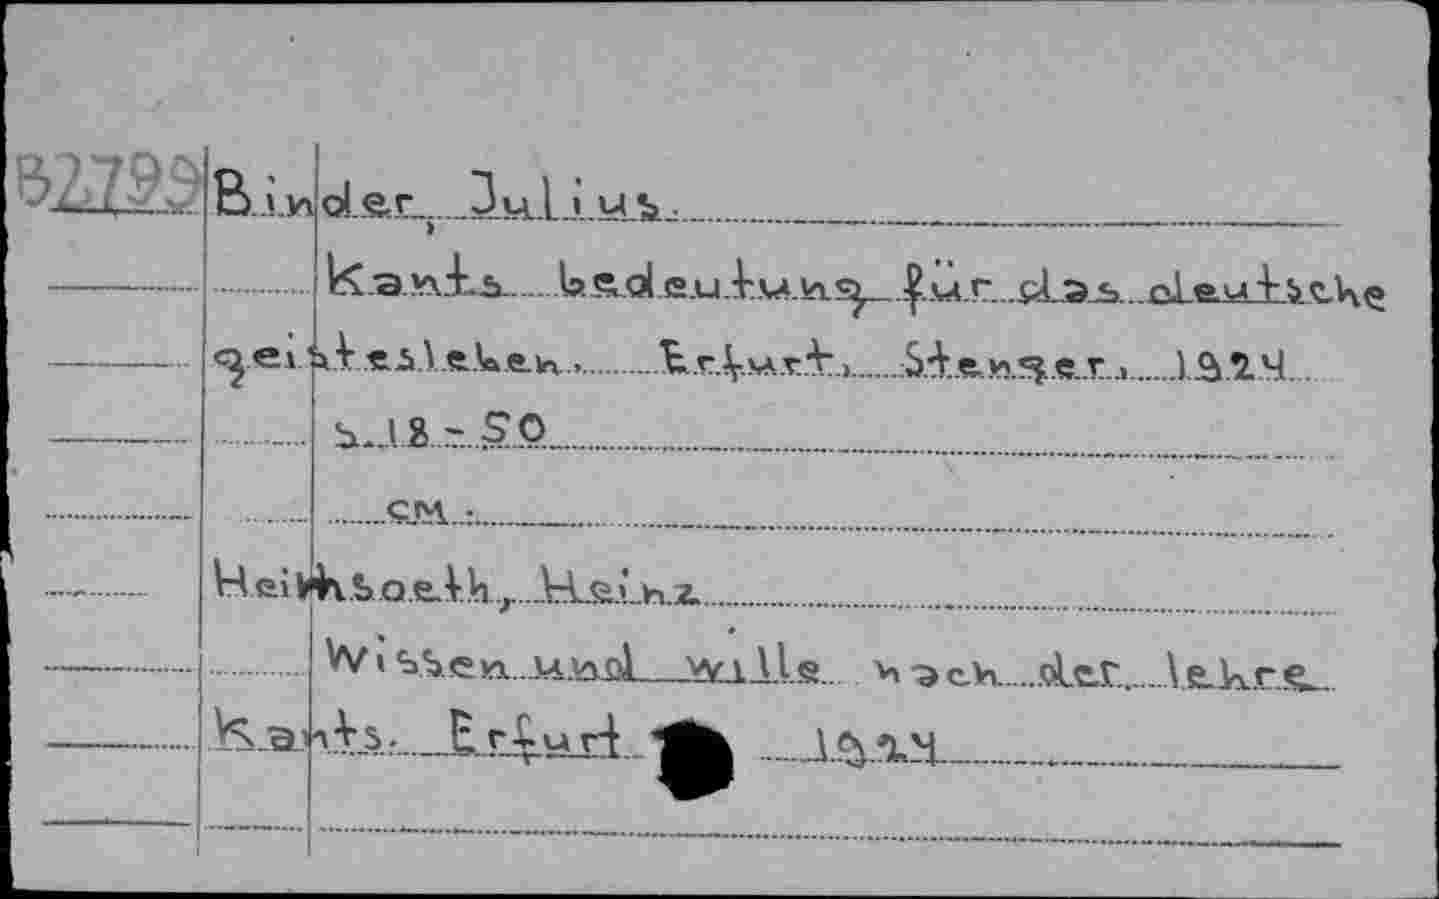 B2799 Binder, Julius.
Kants bedeutung für das deutsche
geistesleben, Erfurt, Stenger, 1924
s. 18-50
см.
Heinhsoeth, Heinz
Wissen und wille nach der lehre
Kants. Erfurt 1924